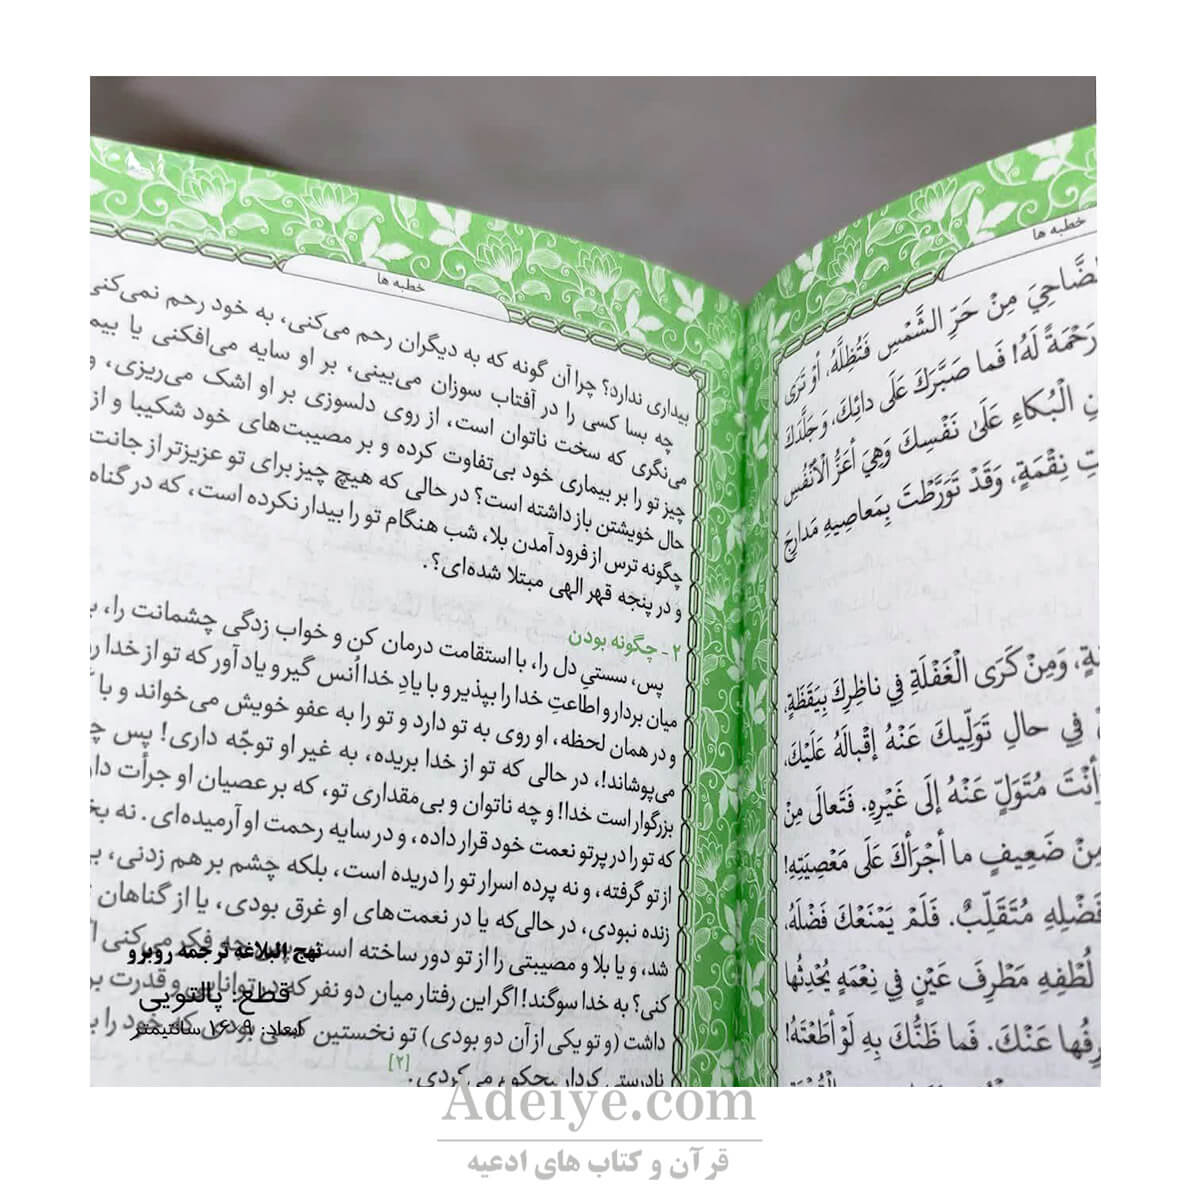 خطبه ها
لضَّاحِيَ مِنْ حَرِّ الشَّمْسِ فَتُظِلُّهُ، أَوْ تَرَى
رَحْمَةً لَهُ! فَما صَبَّرَكَ عَلَى دائِكَ، وَ جَلَّدَكَ
نِ الْبُكاءِ عَلَىٰ نَفْسِكَ وَهِيَ أَعَزُّ الْأَنْفُسِ
تِ نِقْمَةٍ، وَقَدْ تَوَرَّطْتَ بِمَعاصِيهِ مَدارِجَ
ةٍ، وَمِنْ كَرَى الْغَفْلَةِ فِي ناظِرِكَ بِيَقَظَةٍ،
فِي حالِ تَوَلِّيكَ عَنْهُ إقْبالَهُ عَلَيْكَ،
أَنْتَ مُتَوَلٍّ عَنْهُ إلَى غَيْرِهِ. فَتَعالَى مِنْ
مِنْ ضَعِيفٍ ما أَجْرَأَكَ عَلَى مَعْصِيَتِهِ!
فَضْلِهِ مُتَقَلِّبٌ. فَلَمْ يَمْنَعْكَ فَضْلَهُ،
لُطْفِهِ مَطْرِفَ عَيْنٍ فِي نِعْمَةٍ يُحْدِثُها
رِفُها عَنْكَ. فَما ظَنُّكَ بِهِ لَوْ أَطَعْتَهُ!
خطبه ها
بیداری ندارد؟ چرا آن گونه که به دیگران رحم می‌کنی، به خود رحم نمی‌کنی
چه بسا کسی را در آفتاب سوزان می‌بینی، بر او سایه می‌افکنی یا بیم
می‌نگری که سخت ناتوان است، از روی دلسوزی بر او اشک می‌ریزی، و
چیز تو را بر بیماری خود بی‌تفاوت کرده و بر مصیبت‌های خود شکیبا و از
حال خویشتن باز داشته است؟ در حالی که هیچ چیز برای تو عزیزتر از جانت
چگونه ترس از فرود آمدن بلا، شب هنگام تو را بیدار نکرده است، که در گناه
و در پنجه قهر الهی مبتلا شده‌ای؟.
۲ - چگونه بودن
پس، سستی دل را، با استقامت درمان کن و خواب زدگی چشمانت را، ب
میان بردار و اطاعتِ خدا را بپذیر و با یادِ خدا اُنس گیر و یاد آور که تو از خدا
و در همان لحظه، او روی به تو دارد و تو را به عفو خویش می‌خواند و با
می‌پوشاند!، در حالی که تو از خدا بریده، به غیر او توجّه داری! پس چ
بزرگوار است خدا! و چه ناتوان و بی‌مقداری تو، که بر عصیان او جرأت دار
که تو را در پرتو نعمت خود قرار داده، و در سایه رحمت او آرمیده‌ای. نه بخ
از تو گرفته، و نه پرده اسرار تو را دریده است، بلکه چشم بر هم زدنی، ب
زنده نبودی، در حالی‌که یا در نعمت‌های او غرق بودی، یا از گناهان
شد، و یا بلا و مصیبتی را از تو دور ساخته است، پس چه فکر می‌کنی
کنی؟ به خدا سوگند! اگر این رفتار میان دو نفر که در توانایی و قدرت بر
داشت (و تو یکی از آن دو بودی) تو نخستین کسی بودی که خود را
نادرستی کردار محکوم می‌کردی. [۲]
نهج البلاغه ترجمه روبرو
قطع: پالتویی
ابعاد: ۹×۱۶ سانتیمتر
Adeiye.com
قرآن و کتاب های ادعیه